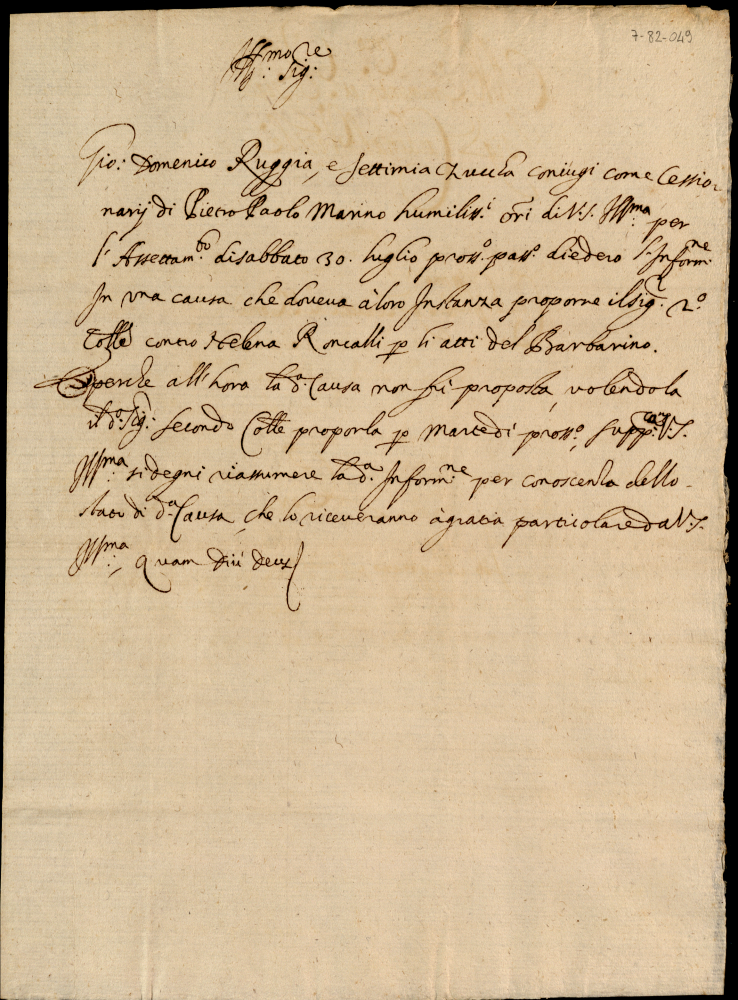 7-82-049
Ill.mo Sig.re
Gio: Domenico Ruggia, e Settimia Zucca coniugi come Cessio-
narij di Pietro Paolo Marino humiliss.i ori di V.S. Ill.ma per
l'Assettam.to di sabbato 30. luglio pross.o pass.o diedero l'Inform.ne
In una causa che doveva à loro Instanza proporre il Sig.r 2.o
Colle contro Helena Roncalli p li atti del Barbarino.
E perche all'hora la d.a Causa non fù proposta, volendola
il d.o Sig.r secondo Colle proporla p Martedi pross.o, supp.ca V.S.
Ill.ma si degni riassumere la d.a Inform.ne per conoscenza dello
stato di d.a Causa, che lo riceveranno à gratia particolare da V.S.
Ill.ma, Quam Diù Deus